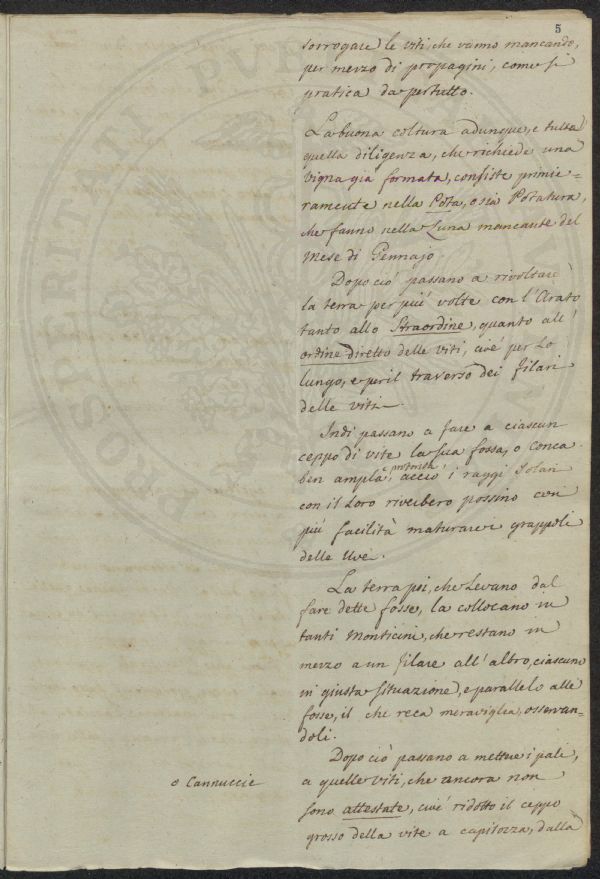 5
sorrogare le viti, che vanno mancando,
per mezzo di propagini, come si
pratica da per tutto.
La buona coltura adunque, e tutta
quella diligenza, che richiede una
Vigna già formata, consiste primie-
ramente nella Pota, o sia Potatura,
che fanno nella Luna mancante del
Mese di Gennajo.
Dopo ciò passano a rivoltare
la terra per più volte con l'Arato
tanto allo Straordine, quanto all'
ordine diretto delle viti, cioè per lo
lungo, e per il traverso dei filari
delle viti.
Indi passano a fare a ciascun
ceppo di vite la sua fossa, o conca
ben ampla, acciò i raggi Solari
con il loro riverbero possino con
più facilità maturare i grappoli
delle Uve.
La terra poi, che Levano dal
fare dette fosse, la collocano in
tanti Monticini, che restano in
mezzo a un filare all'altro, ciascuno
in giusta situazione, e parallelo alle
fosse, il che reca meraviglia, osservan-
doli.
Dopo ciò passano a mettere i pali,
o Cannuccie
a quelle viti, che ancora non
sono attestate, cioè ridotto il ceppo
grosso della vite a capitozza, dalla